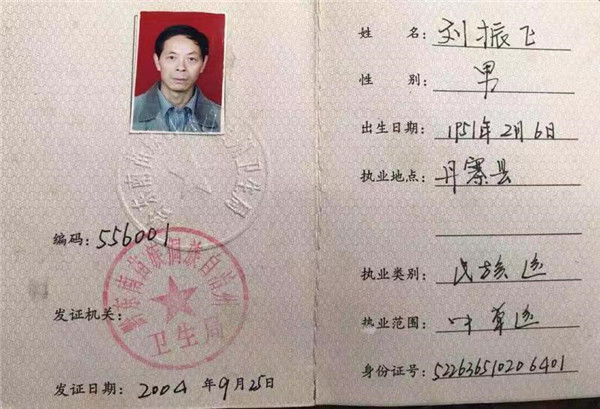 编码：556001
黔东南苗族侗族自治州
卫生局
发证机关：
发证日期：2004 年9月25日
姓 名：刘振飞
性 别：男
出生日期：1951年2月6日
执业地点：丹寨县
执业类别：民族医
执业范围：中草医
身份证号：522636510206401